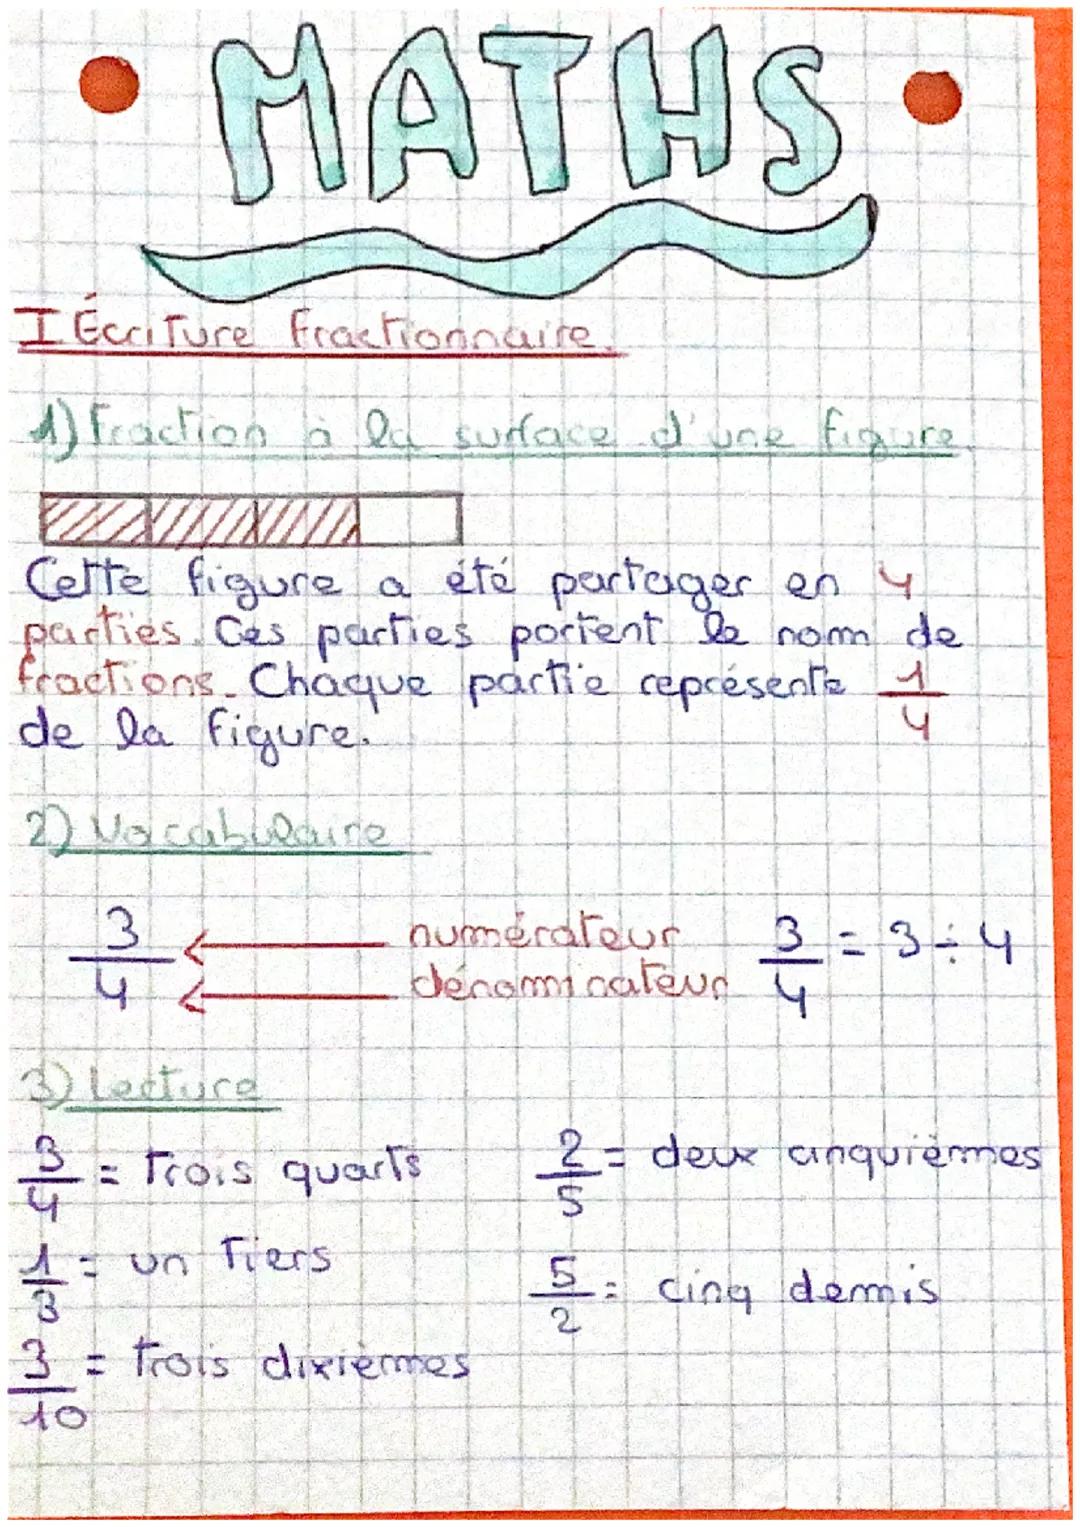 MATHS
I Écriture fractionnaire.
1) fraction à la surface d'une figure.
Cette figure a été partager en 4
parties. Ces parties portent le nom de
fractions. Chaque partie représente 1/4
de la figure.
2) Vocabulaire
3/4 ← numérateur 3/4 = 3 ÷ 4
← dénominateur
3) Lecture
3/4 = trois quarts
2/5 = deux cinquièmes
1/3 = un tiers
5/2 = cinq demis
3/10 = trois dixièmes